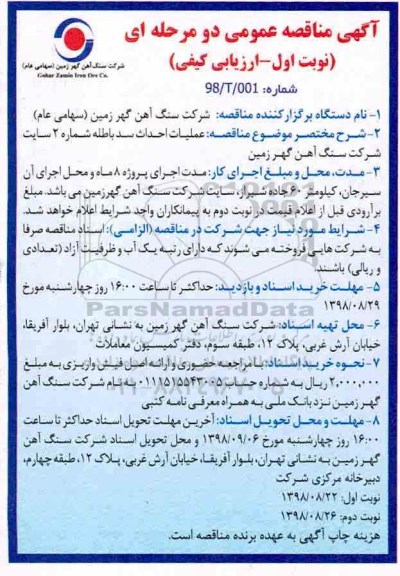 آگهی مناقصه عمومی دو مرحله ای
(نوبت اول-ارزیابی کیفی)
شرکت سنگ آهن گهر زمین (سهامی عام)
Gohar Zamin Iron Ore Co.
شماره: 98/T/001
۱- نام دستگاه برگزارکننده مناقصه: شرکت سنگ آهن گهر زمین (سهامی عام)
۲-شرح مختصر موضوع مناقصه: عملیات احداث سد باطله شماره ۲ سایت
شرکت سنگ آهن گهر زمین
۳- مدت، محل و مبلغ اجرای کار: مدت اجرای پروژه ۸ ماه و محل اجرای آن
سیرجان، کیلومتر ۶۰ جاده شیراز، سایت شرکت سنگ آهن گهرزمین می باشد. مبلغ
برآوردی قبل از اعلام قیمت در نوبت دوم به پیمانکاران واجد شرایط اعلام خواهد شد.
۴- شرایط مورد نیاز جهت شرکت در مناقصه (الزامی): اسناد مناقصه صرفا
به شرکت هایی فروخته می شوند که دارای رتبه یک آب و ظرفیت آزاد (تعدادی
و ریالی) باشند.
۵- مهلت خرید اسناد و بازدید: حداکثر تا ساعت ۱۶:۰۰ روز چهارشنبه مورخ
۱۳۹۸/۰۸/۲۹
ParsNamadData
۶- محل تهیه اسناد: شرکت سنگ آهن گهر زمین به نشانی تهران، بلوار آفریقا،
خیابان آرش غربی، پلاک ۱۲، طبقه سوم، دفتر کمیسیون معاملات
۷- نحوه خرید اسناد: با مراجعه حضوری و ارائه اصل فیش واریزی به مبلغ
۲,۰۰۰,۰۰۰ ریال به شماره حساب ۰۱۱۱۵۱۵۵۴۳۰۰۵ به نام شرکت سنگ آهن
گهر زمین نزد بانک ملی به همراه معرفی نامه کتبی
۸- مهلت و محل تحویل اسناد: آخرین مهلت تحویل اسناد حداکثر تا ساعت
۱۶:۰۰ روز چهارشنبه مورخ ۱۳۹۸/۰۹/۰۶ و محل تحویل اسناد شرکت سنگ آهن
گهر زمین به نشانی تهران، بلوار آفریقا، خیابان آرش غربی، پلاک ۱۲، طبقه چهارم،
دبیرخانه مرکزی شرکت
نوبت اول: ۱۳۹۸/۰۸/۲۲
نوبت دوم: ۱۳۹۸/۰۸/۲۶
هزینه چاپ آگهی به عهده برنده مناقصه است.